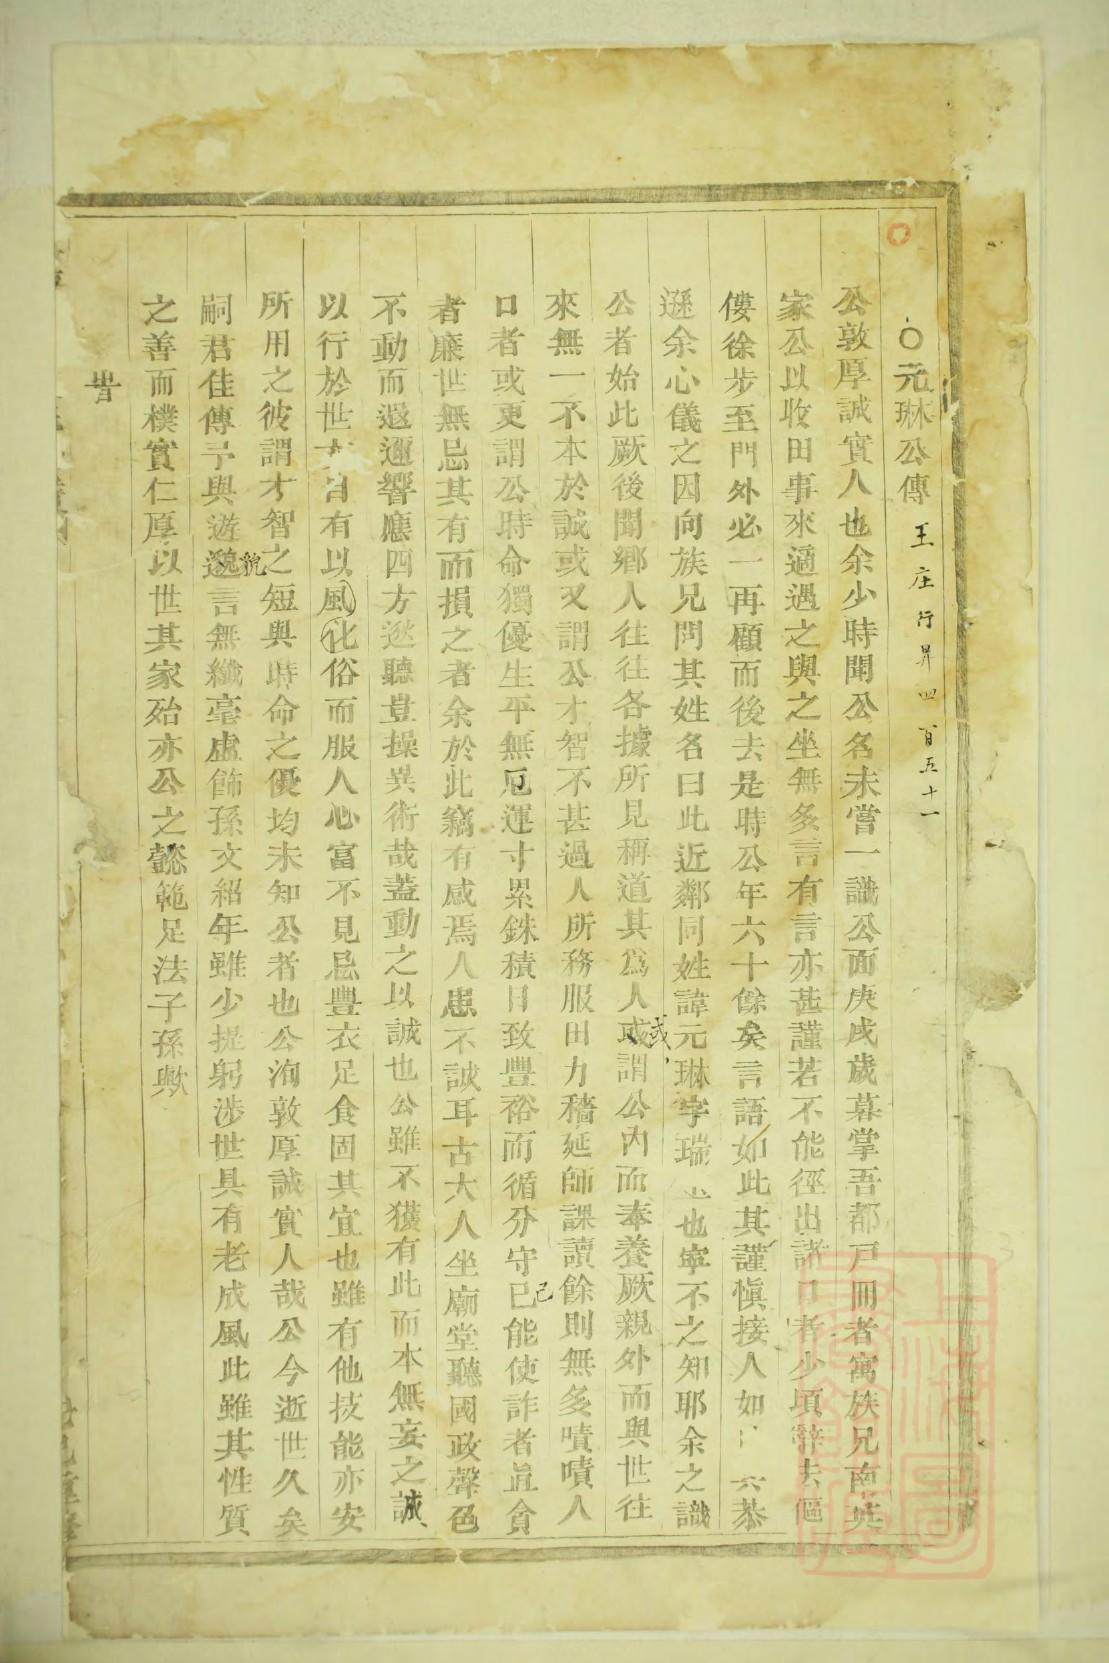 ○元琳公傳 王庄行昇四百五十一
公敦厚誠實人也余少時聞公名未嘗一識公面庚戌歲暮掌吾都戸冊者寓族兄南英
家公以收田事來適遇之與之坐無多言有言亦甚謹若不能徑出諸口者少頃辭去傴
僂徐步至門外必一再顧而後去是時公年六十餘矣言語如此其謹愼接人如 恭
遜余心儀之因向族兄問其姓名曰此近鄰同姓諱元琳字瑞 也寧不之知耶余之識
公者始此厥後聞鄉人往往各據所見稱道其爲人或謂公內而奉養厥親外而與世往
來無一不本於誠或又謂公才智不甚過人所務服田力穡延師課讀餘則無多嘖嘖人
口者或更謂公時命獨優生平無厄運寸累銖積日致豐裕而循分守已己能使詐者直貪
者廉世無忌其有而損之者余於此竊有感焉人患不誠耳古大人坐廟堂聽國政聲色
不動而遐邇響應四方逖聽豈操異術哉蓋動之以誠也公雖不獲有此而本無妄之誠
以行於世 自有以風化俗而服人心富不見忌豐衣足食固其宜也雖有他技能亦安
所用之彼謂才智之短與時命之優均未知公者也公洵敦厚誠實人哉公今逝世久矣
嗣君佳傳予與遊邈貌言無纖毫虛飾孫文紹年雖少提躬涉世具有老成風此雖其性質
之善而樸實仁厚以世其家殆亦公之懿範足法子孫歟